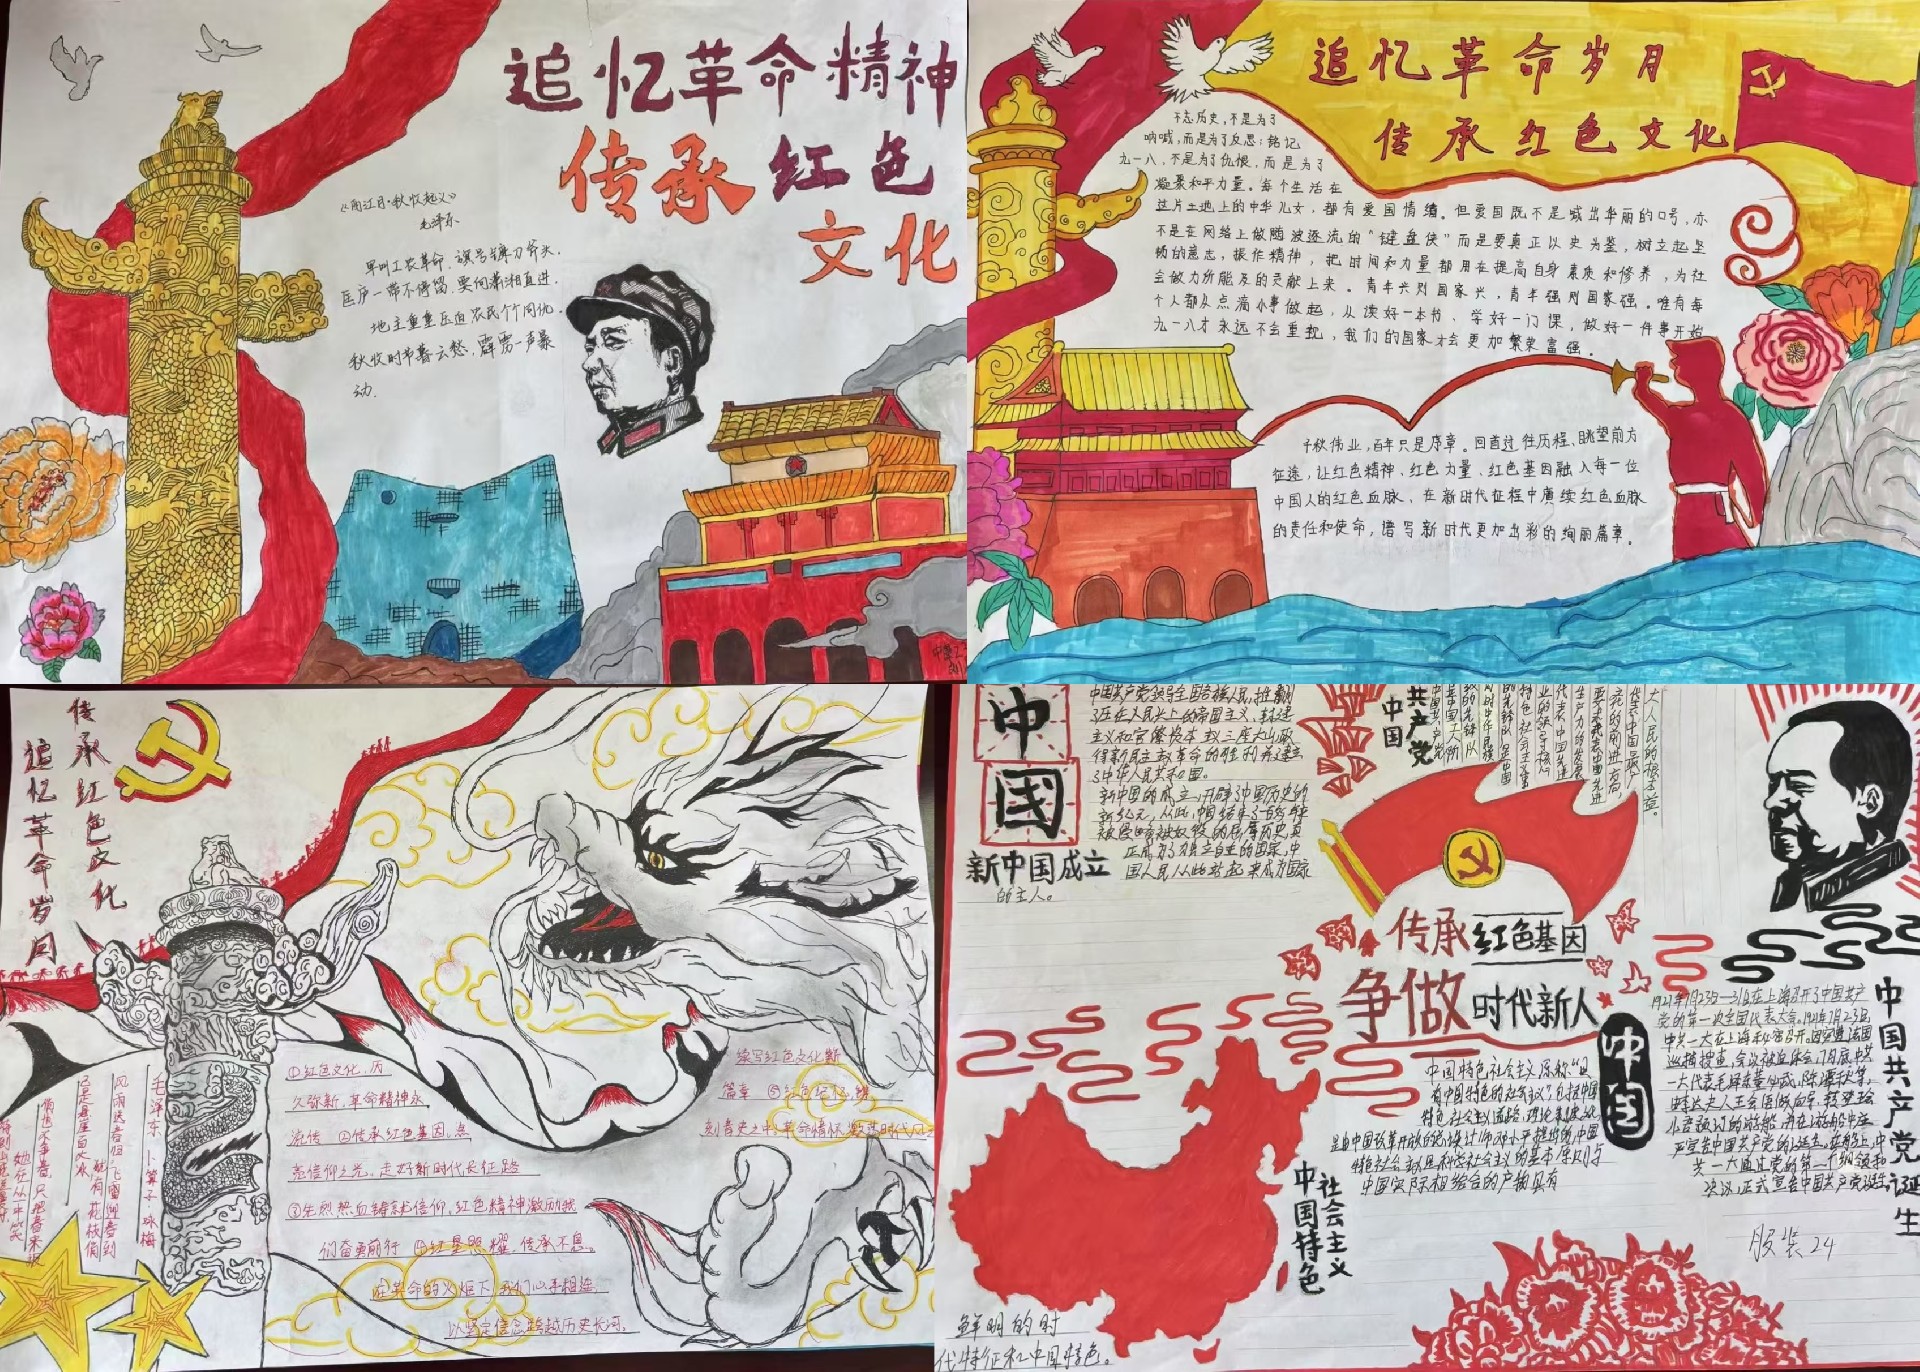 追忆革命精神
传承红色
文化
《西江月·秋收起义》
毛泽东
军叫工农革命，旗号镰刀斧头。
匡庐一带不停留，要向潇湘直进。
地主重重压迫，农民个个同仇。
秋收时节暮云愁，霹雳一声暴
动.
追忆革命岁月
传承红色文化
不忘历史，不是为了
呐喊，而是为了反思；铭记
九一八，不是为了仇恨，而是为了
凝聚和平力量。每个生活在
这片土地上的中华儿女，都有爱国情绪。但爱国既不是喊出华丽的口号，亦
不是在网络上做随波逐流的“键盘侠”而是要真正以史为鉴，树立起坚
韧的意志，振作精神，把时间和力量都用在提高自身素质和修养，为社
会做力所能及的贡献上来。青年兴则国家兴，青年强则国家强。唯有每
个人都从点滴小事做起，从读好一本书、学好一门课，做好一件事开始
九一八才永远不会重现，我们的国家才会更加繁荣富强。
千秋伟业，百年只是序章。回首过往历程、眺望前方
征途，让红色精神、红色力量、红色基因融入每一位
中国人的红色血脉，在新时代征程中赓续红色血脉
的责任和使命，谱写新时代更加出彩的绚丽篇章。
传承红色文化
追忆革命岁月
毛泽东 卜算子·咏梅
风雨送春归，飞雪迎春到
已是悬崖百丈冰
犹有花枝俏
俏也不争春，只把春来报
她在丛中笑
①红色文化，历
久弥新，革命精神永
流传 ②传承红色基因，点
亮信仰之光，走好新时代长征路
③先烈热血铸就信仰，红色精神激励我
们奋勇前行 ④红星照耀，传承不息。
在革命的火炬下，我们心手相连
以坚定信念跨越历史长河。
续写红色文化新
篇章 ⑤红色记忆，镌
刻青史之中，革命情怀
中
国
新中国成立
中国共产党领导全国各族人民，推翻
了压在人民头上的帝国主义、封建
主义和官僚资本主义三座大山，取
得新民主主义革命的胜利并建立
了中华人民共和国。
新中国的成立，开辟了中国历史的
新纪元，从此，中国结束了一百多年
被侵略被奴役的屈辱历史，真
正成为了独立自主的国家，中
国人民从此站起来成为国家
的主人。
中国
共产党
大人民的根本利益。
传承红色基因
争做时代新人
中国
中国特色社会主义原称“具
有中国特色的社会主义”，包括中国
特色社会主义道路、理论、制度、文化
是由中国改革开放的总设计师邓小平提出的，中国
特色社会主义是科学社会主义的基本原则与
中国实际相结合的产物，具有
鲜明的时
代特征和中国特色。
社会主义
中国特色
中国共产党诞生
1921年7月23日—31日在上海召开了中国共产
党的第一次全国代表大会。1921年7月23日，
服装24